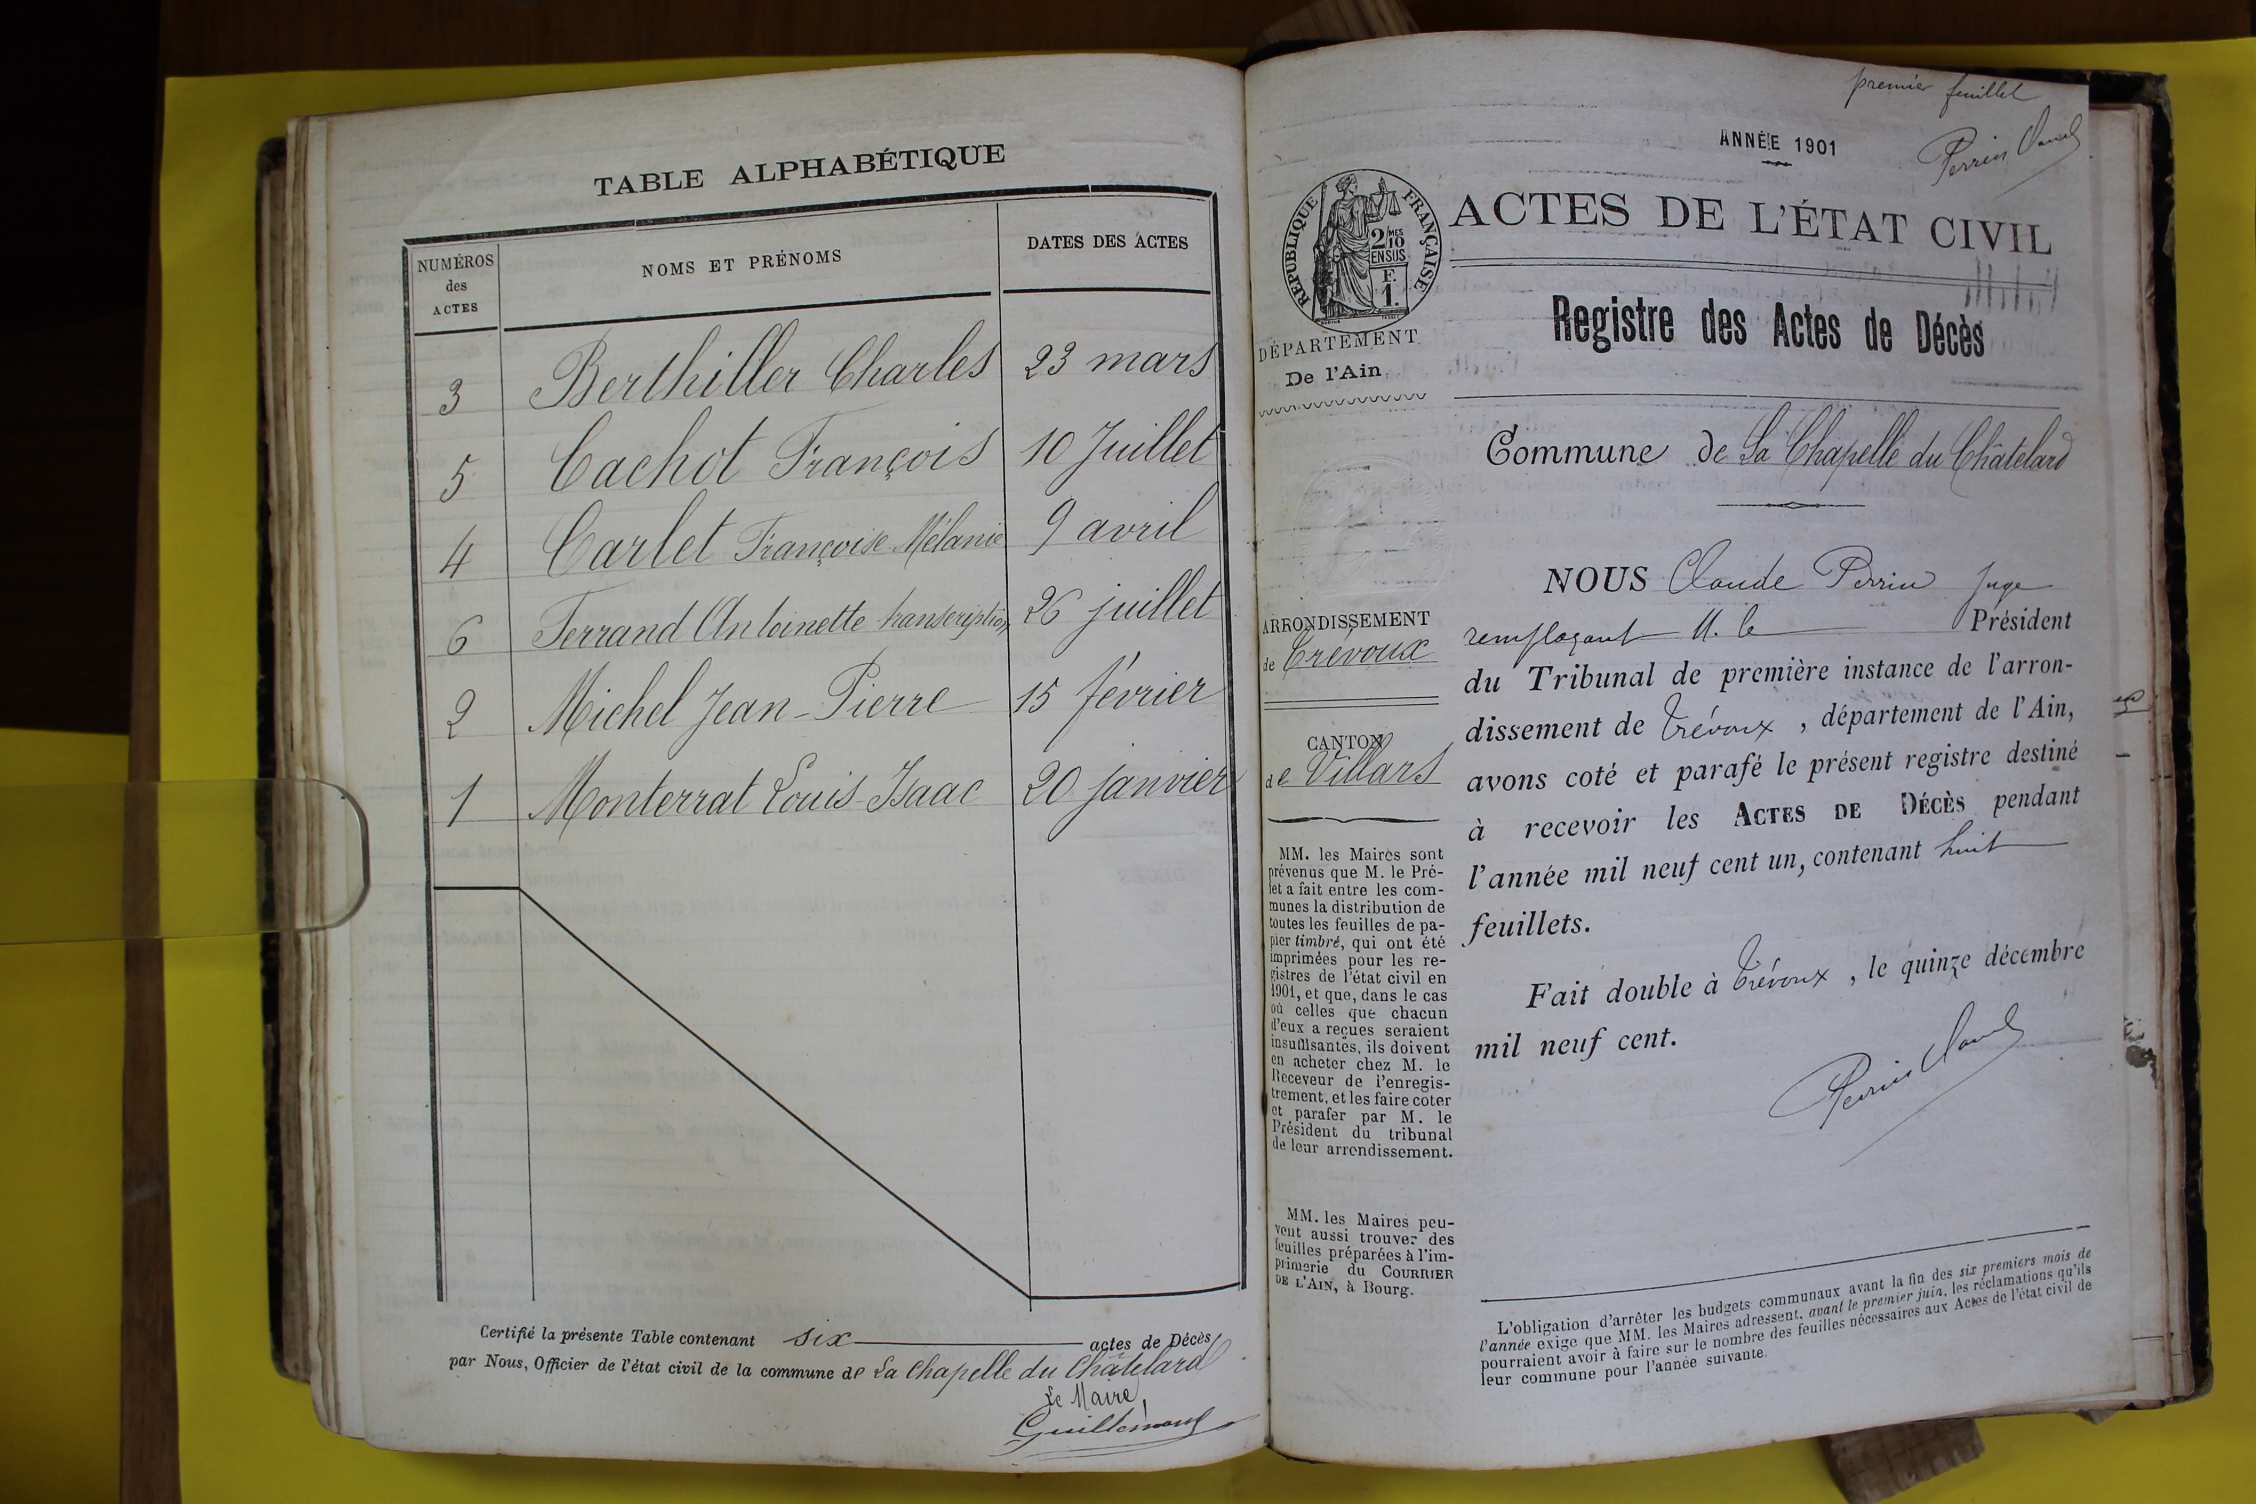 TABLE ALPHABÉTIQUE
NUMÉROS des ACTES
NOMS ET PRÉNOMS
DATES DES ACTES
3 Berthiller Charles 23 mars
5 Cachot François 10 Juillet
4 Carlet Françoise Mélanie 9 avril
6 Ferrand Antoinette transcription 26 juillet
2 Michel Jean-Pierre 15 février
1 Monterrat Louis-Isaac 20 janvier
Certifié la présente Table contenant six actes de Décès
par Nous, Officier de l'état civil de la commune de La Chapelle du Châtelard
Le Maire,
Guillemaud
premier feuillet
Perrin Claude
ANNÉE 1901
RÉPUBLIQUE FRANÇAISE
2/10 MES
EN SUS
F.
1.
ACTES DE L'ÉTAT CIVIL
DÉPARTEMENT
De l'Ain
Registre des Actes de Décès
Commune de La Chapelle du Châtelard
ARRONDISSEMENT
de Trévoux
CANTON
de Villars
MM. les Maires sont
prévenus que M. le Pré-
fet a fait entre les com-
munes la distribution de
toutes les feuilles de pa-
pier timbré, qui ont été
imprimées pour les re-
gistres de l'état civil en
1901, et que, dans le cas
où celles que chacun
d'eux a reçues seraient
insuffisantes, ils doivent
en acheter chez M. le
Receveur de l'enregis-
trement, et les faire coter
et parafer par M. le
Président du tribunal
de leur arrondissement.
MM. les Maires peu-
vent aussi trouver des
feuilles préparées à l'im-
primerie du COURRIER
DE L'AIN, à Bourg.
NOUS Claude Perrin Juge
remplaçant M. le Président
du Tribunal de première instance de l'arron-
dissement de Trévoux, département de l'Ain,
avons coté et parafé le présent registre destiné
à recevoir les ACTES DE DÉCÈS pendant
l'année mil neuf cent un, contenant huit
feuillets.
Fait double à Trévoux, le quinze décembre
mil neuf cent.
Perrin Claude
L'obligation d'arrêter les budgets communaux avant la fin des six premiers mois de
l'année exige que MM. les Maires adressent, avant le premier juin, les réclamations qu'ils
pourraient avoir à faire sur le nombre des feuilles nécessaires aux Actes de l'état civil de
leur commune pour l'année suivante.